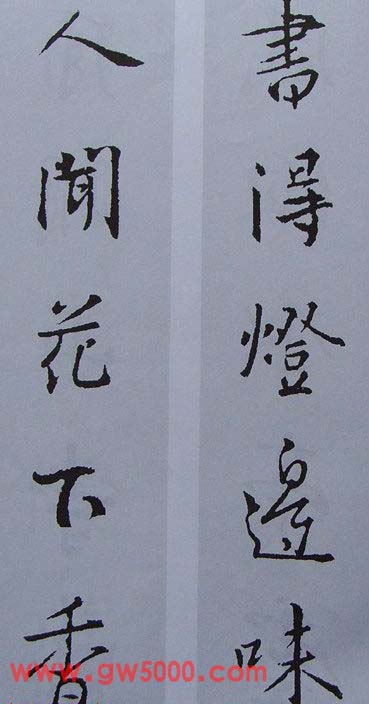 書得燈邊味
人聞花下香
www.gw5000.com